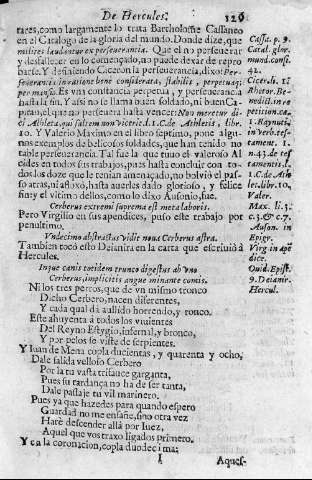 De Hercules.
129
tares, como largamente lo trata Bartholome Cassaneo
en el Catalogo de la gloria del mundo. Donde dize, que
milites laudantur ex perseuerantia. Que el no perseuerar
y desfallecer en lo començado, no puede dexar de repro
barse. Y definiendo Ciceron la perseuerancia, dixo: Per-
seuerantia in ratione bene considerata, stabilis, perpetuaq;
permansio. Es vna constancia perpetua, y perseuerancia
hasta la fin. Y assi no se llama buen soldado, ni buen Ca-
pitan, el que no perseuera hasta vencer: Non meretur di-
ci Athleta, qui saltem non vicit. l. 1. C. de Athletis, libr.
10. Y Valerio Maximo en el libro septimo, pone algu-
nos exemplos de belicosos soldados, que han tenido no
table perseuerancia. Tal fue la que tuuo el valeroso Al
cides en todos sus trabajos, pues hasta concluir con to-
dos los doze que le tenian amenaçado, no boluiò el pas-
so atras, ni afloxò, hasta auerles dado glorioso, y felice
fin: y el vltimo dellos, como lo dixo Ausonio, fue.
Cerberus extremi suprema est meta laboris.
Pero Virgilio en sus apendices, puso este trabajo por
penultimo.
Vndecimo abstractus vidit noua Cerberus astra.
Tambien tocò esto Deianira en la carta que escriuiò à
Hercules.
Inque canis totidem trunco digestus ab vno
Cerberus, implicitis angue minante comis.
Ni los tres perros, que de vn mismo tronco
Dicho Cerbero, nacen diferentes,
Y cada qual dà aullido horrendo, y ronco.
Este ahuyenta à todos los viuientes
Del Reyno Estygio, infernal, y bronco,
Y por pelos se viste de serpientes.
Y Iuan de Mena copla ducientas, y quarenta y ocho,
Dale salida velloso Cerbero
Por la tu vasta trifauce garganta,
Pues su tardança no ha de ser tanta,
Dale passaje tu vil marinero.
Pues ya que hazedes para quando espero
Guardad no me ensañe, sino otra vez
Harè descender allà por Iuez,
Aquel que vos traxo ligados primero.
Y en la coronacion, copla duodecima;
I
Aques-
Cassa. p. 9.
Catal. glor.
mund. consi.
42.
Cicer. li. 2
Rhetor. Be
nedict. in re
petition. ca.
1. Raynut.
in verb. tes-
tament. l. 1.
n. 43. de tes
tamentis. l.
1. C. de Ath
let. libr. 10.
Valer.
Max. li. 3.
c. 3. & c. 7.
Auson. in
Epigr.
Virg. in apē
dice.
Ouid. Epist.
9. Deianir.
Hercul.